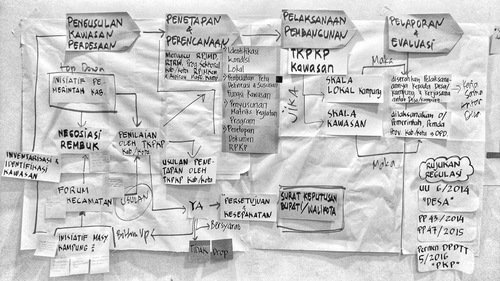 PENGUSULAN
KAWASAN
PERDESAAN
Top Down
INISIATIF PE-
MERINTAH KAB
NEGOSIASI
REMBUK
INVENTARISASI &
IDENTIFIKASI
KAWASAN
FORUM
KECAMATAN
INISIATIF MASY
KAMPUNG
Bottom Up
USULAN
PENILAIAN
OLEH TKPKP
Kab/Kota
PENETAPAN
&
PERENCANAAN
Mengacu RPJMD,
Kab/Kota
Identifikasi
Kondisi
Lokal
Kawasan
Penyusunan
Matriks Kegiatan
Program
Penetapan
Dokumen
RPKP
USULAN PENE-
TAPAN OLEH
TKPKP Kab/Kota
YA
PERSETUJUAN
KESEPAKATAN
Bersyarat
TIDAK
Drop
PELAKSANAAN
PEMBANGUNAN
TKPKP
Kawasan
JIKA
SKALA
LOKAL Kampung
SKALA
KAWASAN
SURAT KEPUTUSAN
BUPATI/WALIKOTA
PELAPORAN
&
EVALUASI
Maka
Maka
dilaksanakan o/
Pemerintah, Pemda
Prov, Kab/Kota → OPD
RUJUKAN
REGULASI
UU 6/2014
"DESA"
PP 43/2014
PP 47/2015
Permen DPDTT
5/2016
"PKP"